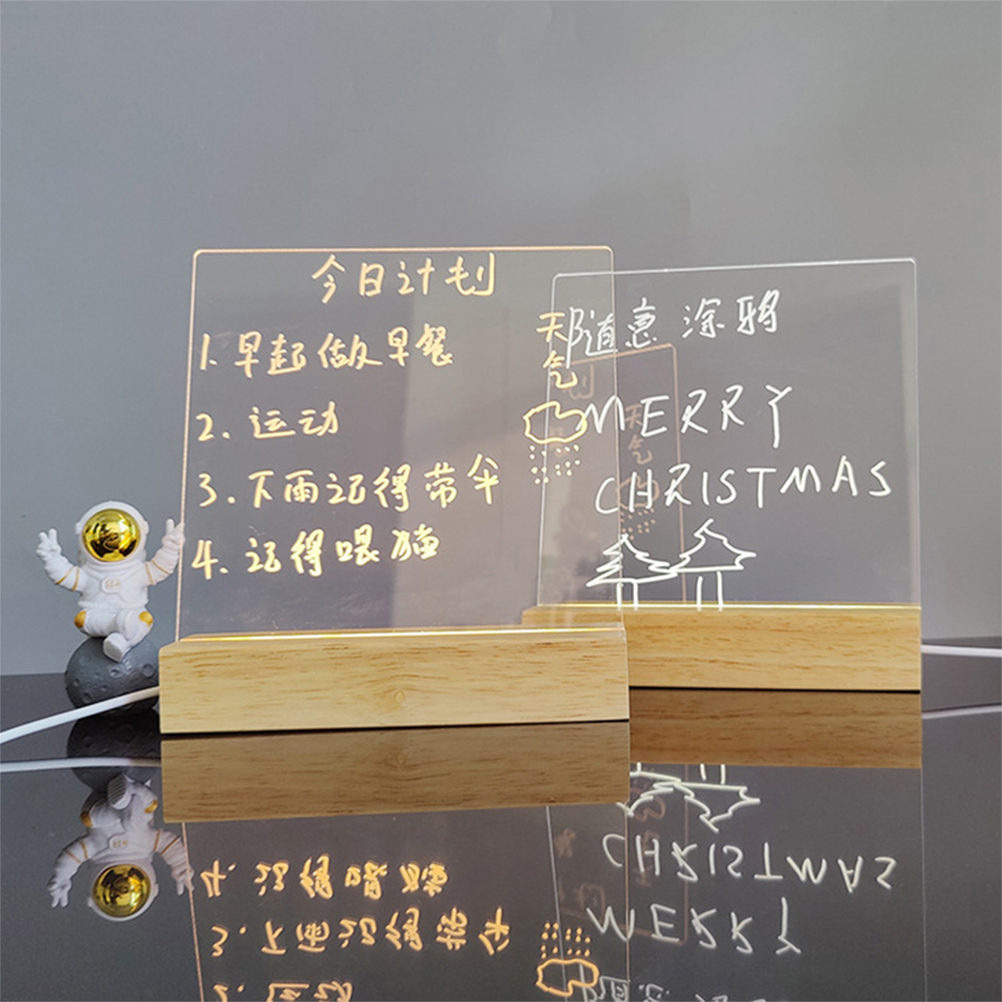 今日计划
1. 早起做早餐
2. 运动
3. 下雨记得带伞
4. 记得喂猫
天气
随意涂鸦
MERRY
CHRISTMAS